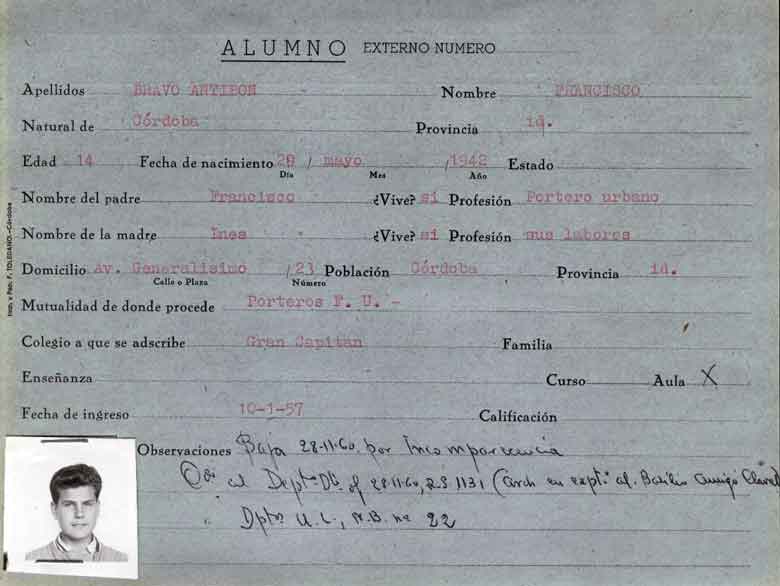 ALUMNO EXTERNO NUMERO
Apellidos BRAVO ANTIBON Nombre FRANCISCO
Natural de Córdoba Provincia id.
Edad 14 Fecha de nacimiento 29 / mayo / 1942 Estado
Día Mes Año
Nombre del padre Francisco ¿Vive? si Profesión Portero urbano
Nombre de la madre Ines ¿Vive? si Profesión sus labores
Domicilio Av. Generalisimo / 23 Población Córdoba Provincia id.
Calle o Plaza Número
Mutualidad de donde procede Porteros F. U. -
Colegio a que se adscribe Gran Capitan Familia
Enseñanza Curso Aula X
Fecha de ingreso 10-1-57 Calificación
Observaciones Baja 28-11-60, por Incomparecencia
al Deptº of 28-11-60, R.S 1131 (arch en expte. al. Basilio Amigo
U. L., N.B. nº 22
TOLEDANO.-Córdoba